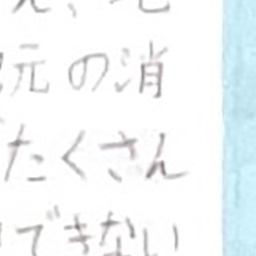 元の消
たくさん
できない